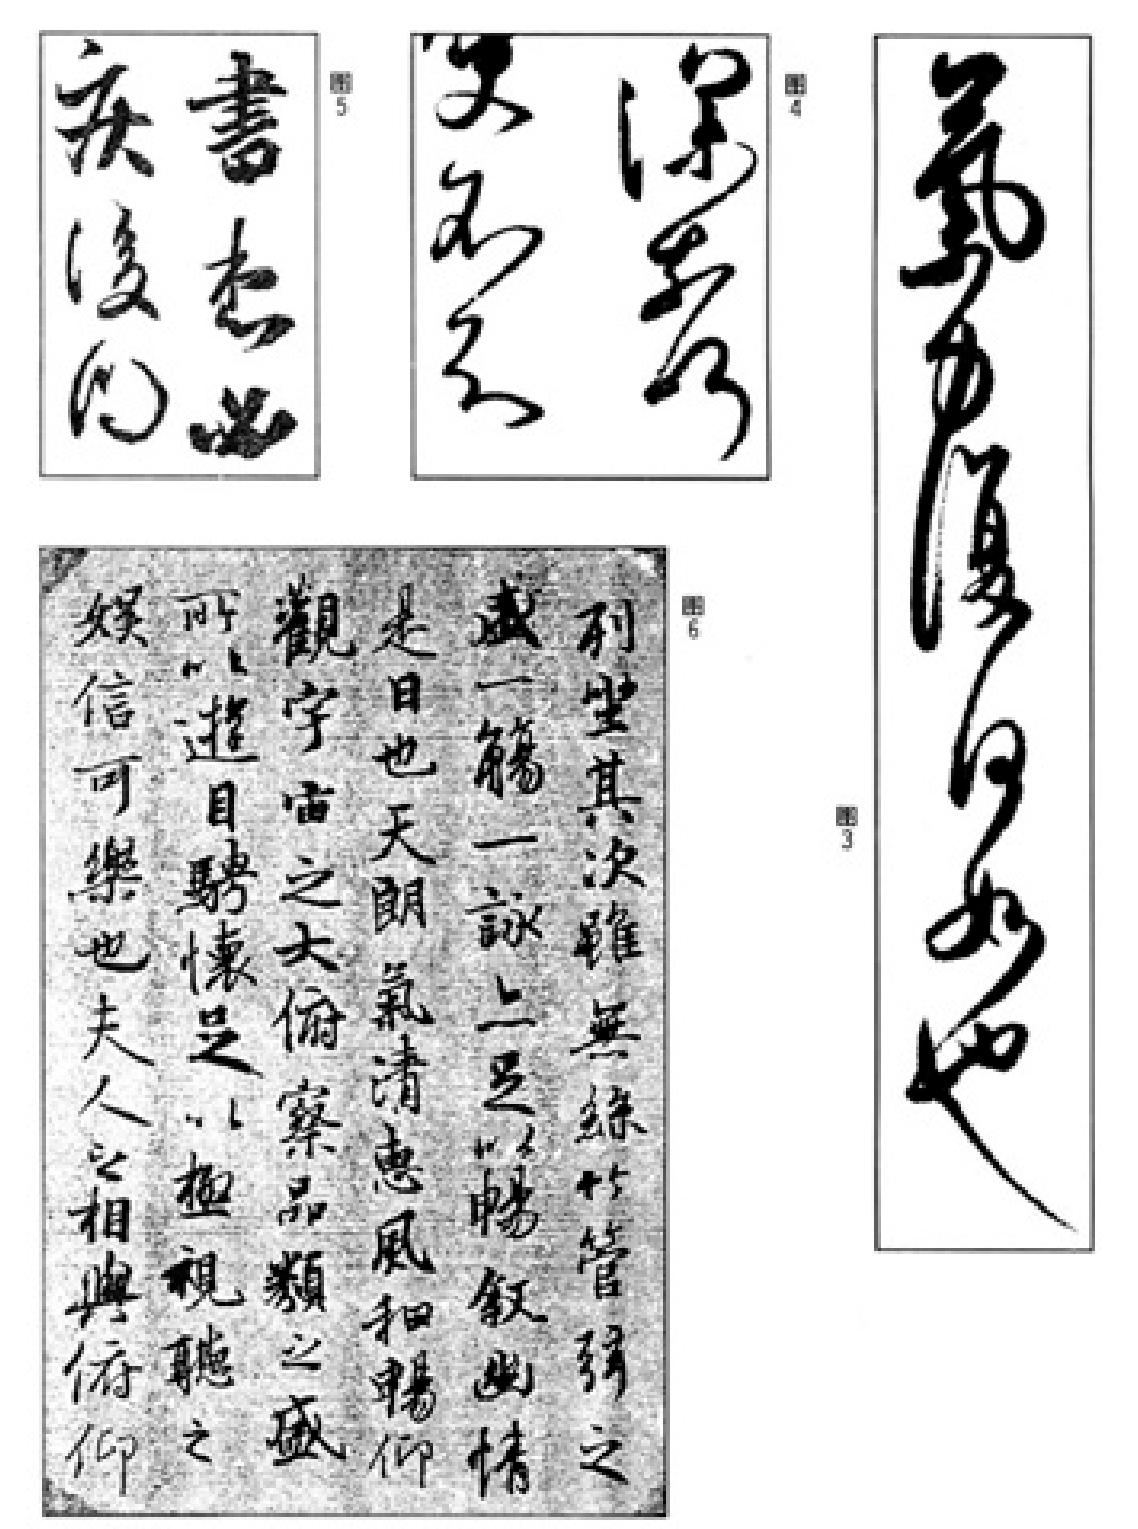 图3
氣力復何如也
图4
深
图5
書必
疾後
图6
列坐其次雖無絲竹管弦之
盛一觴一詠亦足以暢叙幽情
是日也天朗氣清惠風和暢仰
觀宇宙之大俯察品類之盛
所以遊目騁懷足以極視聽之
娛信可樂也夫人之相與俯仰